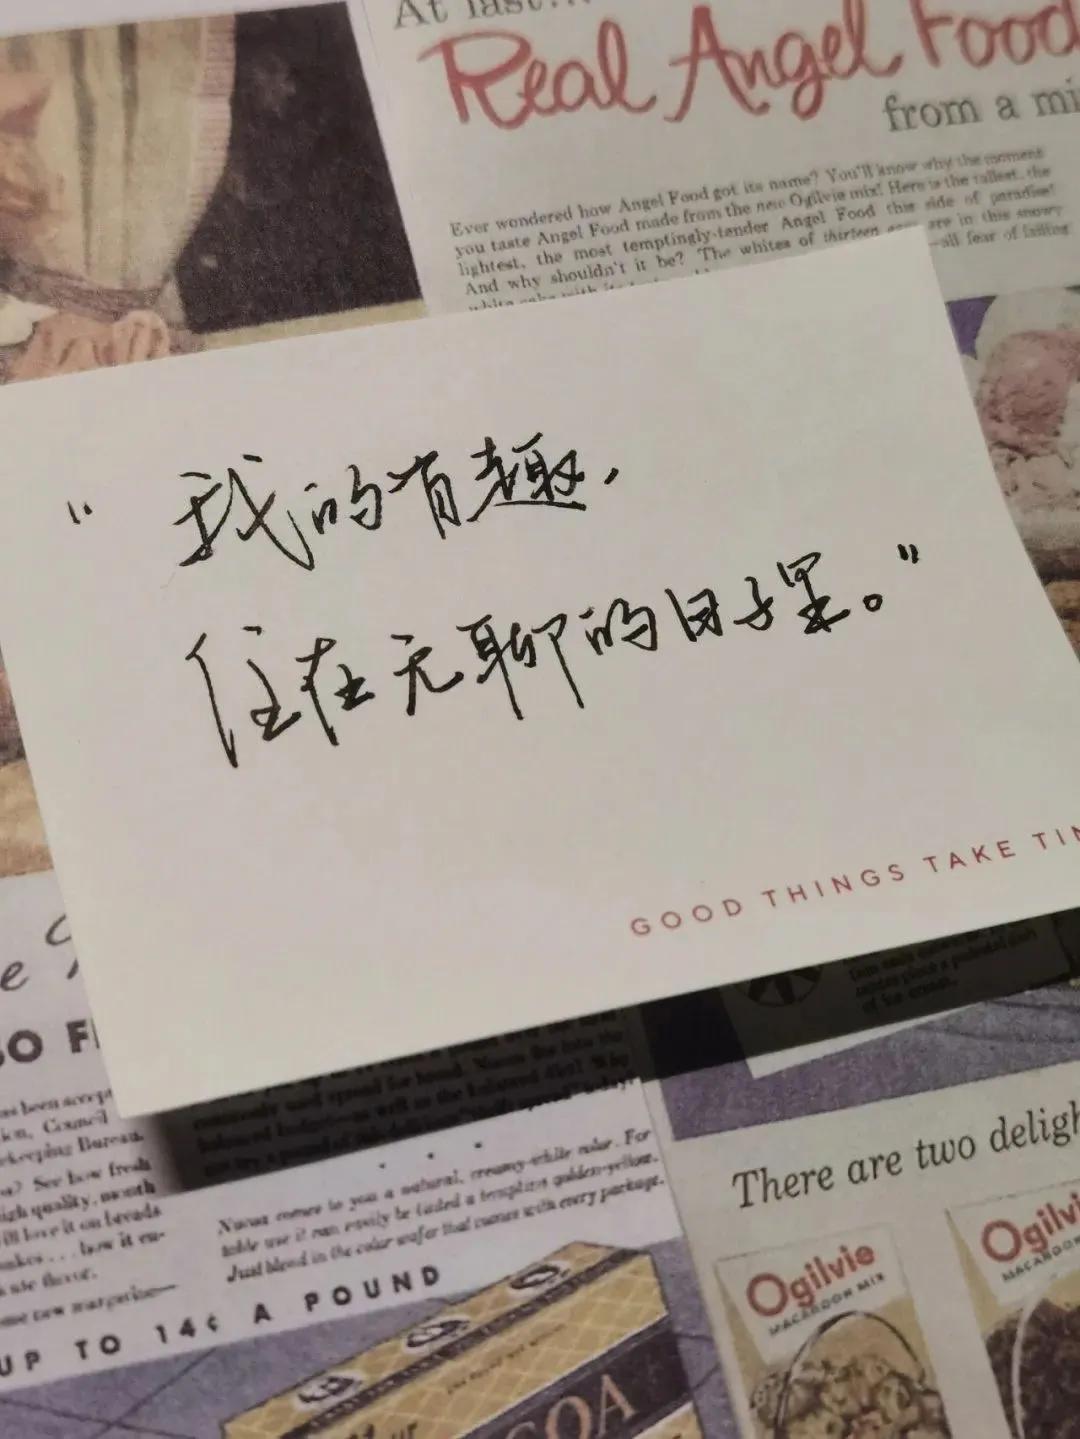 At last...
Real Angel Food
from a mi
Ever wondered how Angel Food got its name? You'll know why the moment
you taste Angel Food made from the new Ogilvie mix! Here is the tallest, the
lightest, the most temptingly-tender Angel Food this side of paradise!
And why shouldn't it be? The whites of thirteen eggs are in this snowy
—all fear of failing
“我的有趣,
住在无聊的日子里。”
GOOD THINGS TAKE TIM
SO F
has been accept
Council
Bureau.
? See how fresh
high quality, month
love it on breads
. . . how it
UP TO 14¢ A POUND
Nucoa comes to you a natural, creamy-white color. For
table use it can easily be tinted a tempting golden-yellow.
Just blend in the color wafer that comes with every package.
of ice cream.
There are two deligh
Ogilvie
MACAROON MIX
Ogilvi
MACAROON
OA